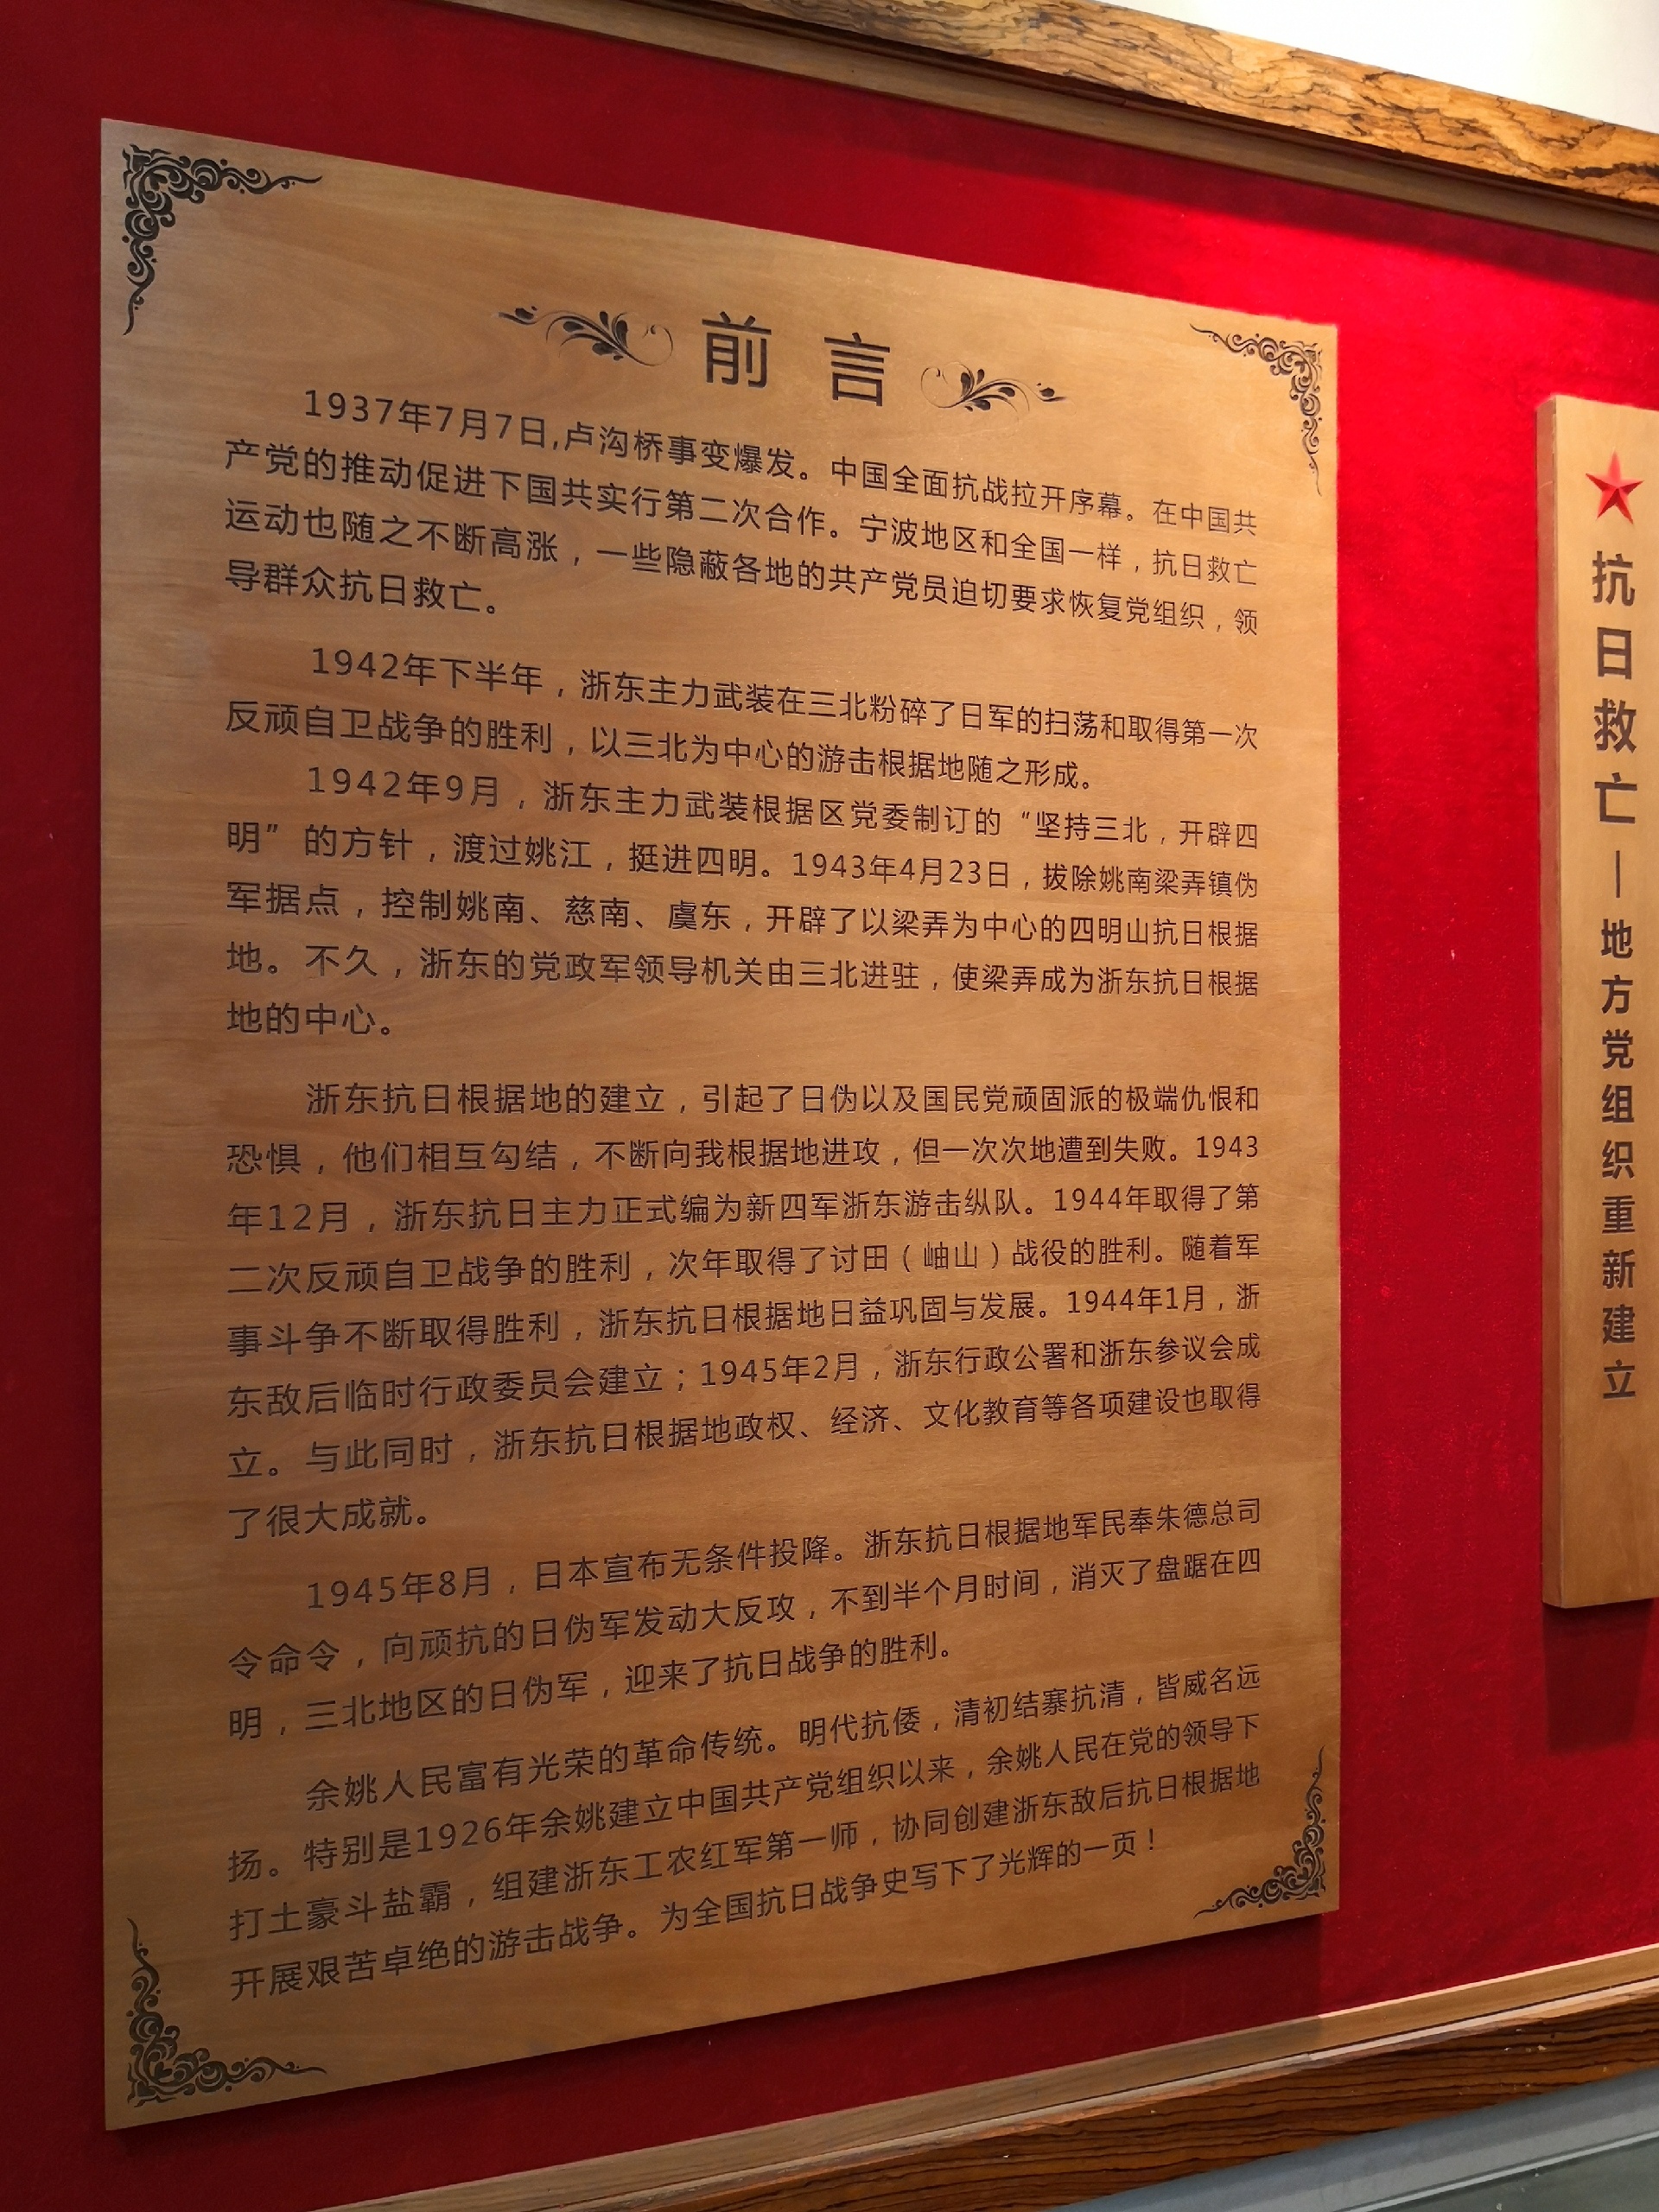 前言
1937年7月7日,卢沟桥事变爆发。中国全面抗战拉开序幕。在中国共
产党的推动促进下国共实行第二次合作。宁波地区和全国一样，抗日救亡
运动也随之不断高涨，一些隐蔽各地的共产党员迫切要求恢复党组织，领
导群众抗日救亡。
1942年下半年，浙东主力武装在三北粉碎了日军的扫荡和取得第一次
反顽自卫战争的胜利，以三北为中心的游击根据地随之形成。
1942年9月，浙东主力武装根据区党委制订的“坚持三北，开辟四
明”的方针，渡过姚江，挺进四明。1943年4月23日，拔除姚南梁弄镇伪
军据点，控制姚南、慈南、虞东，开辟了以梁弄为中心的四明山抗日根据
地。不久，浙东的党政军领导机关由三北进驻，使梁弄成为浙东抗日根据
地的中心。
浙东抗日根据地的建立，引起了日伪以及国民党顽固派的极端仇恨和
恐惧，他们相互勾结，不断向我根据地进攻，但一次次地遭到失败。1943
年12月，浙东抗日主力正式编为新四军浙东游击纵队。1944年取得了第
二次反顽自卫战争的胜利，次年取得了讨田（岫山）战役的胜利。随着军
事斗争不断取得胜利，浙东抗日根据地日益巩固与发展。1944年1月，浙
东敌后临时行政委员会建立；1945年2月，浙东行政公署和浙东参议会成
立。与此同时，浙东抗日根据地政权、经济、文化教育等各项建设也取得
了很大成就。
1945年8月，日本宣布无条件投降。浙东抗日根据地军民奉朱德总司
令命令，向顽抗的日伪军发动大反攻，不到半个月时间，消灭了盘踞在四
明，三北地区的日伪军，迎来了抗日战争的胜利。
余姚人民富有光荣的革命传统。明代抗倭，清初结寨抗清，皆威名远
扬。特别是1926年余姚建立中国共产党组织以来，余姚人民在党的领导下
打土豪斗盐霸，组建浙东工农红军第一师，协同创建浙东敌后抗日根据地
开展艰苦卓绝的游击战争。为全国抗日战争史写下了光辉的一页！
抗日救亡—地方党组织重新建立